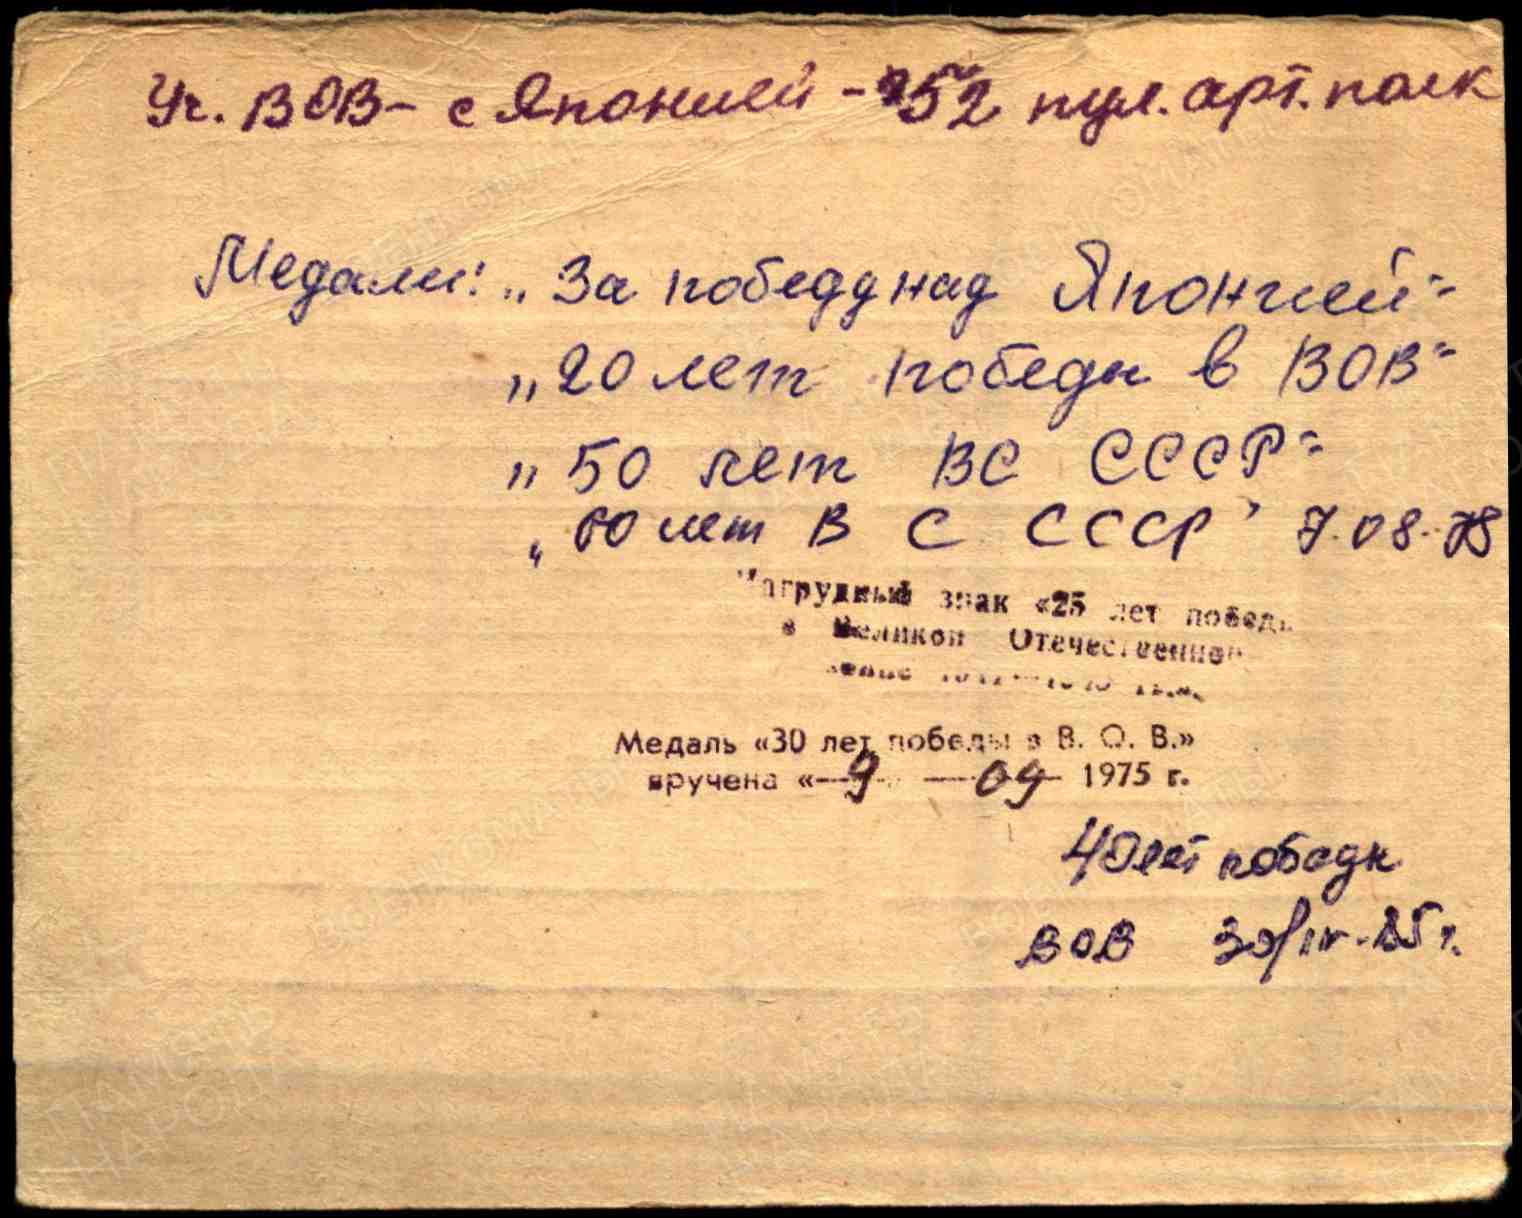 Уч. ВОВ - с Японией - 252 пул. арт. полк
Медали: „За победу над Японией"
„20 лет победы в ВОВ"
„50 лет ВС СССР"
„60 лет ВС СССР" 7.08.78
Нагрудный знак «25 лет победы
в Великой Отечественной
войне 1941—1945 гг.»
Медаль «30 лет победы в В. О. В.»
вручена «9» 09 1975 г.
40 лет победы
ВОВ 30/IV-85 г.